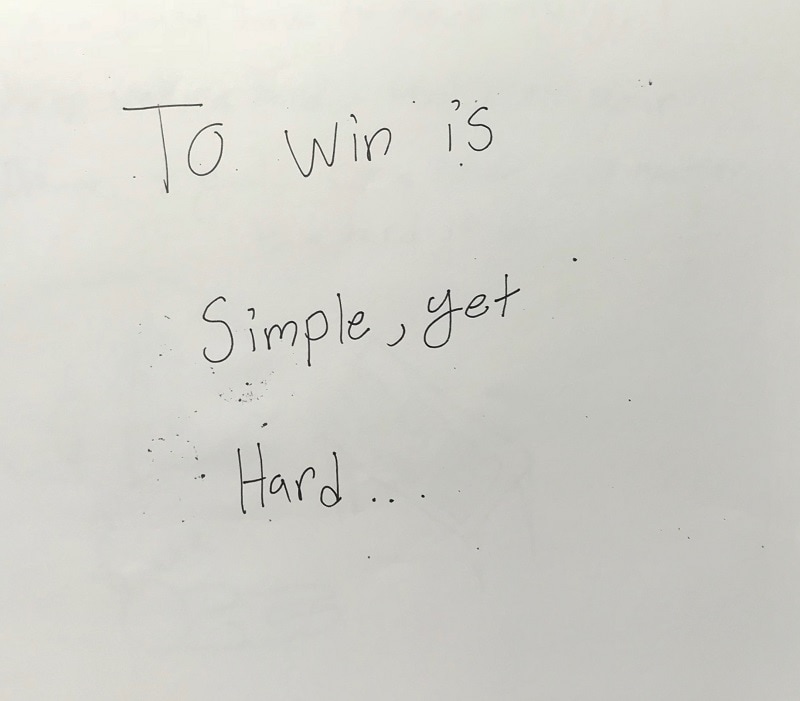 To win is
Simple, yet
Hard...